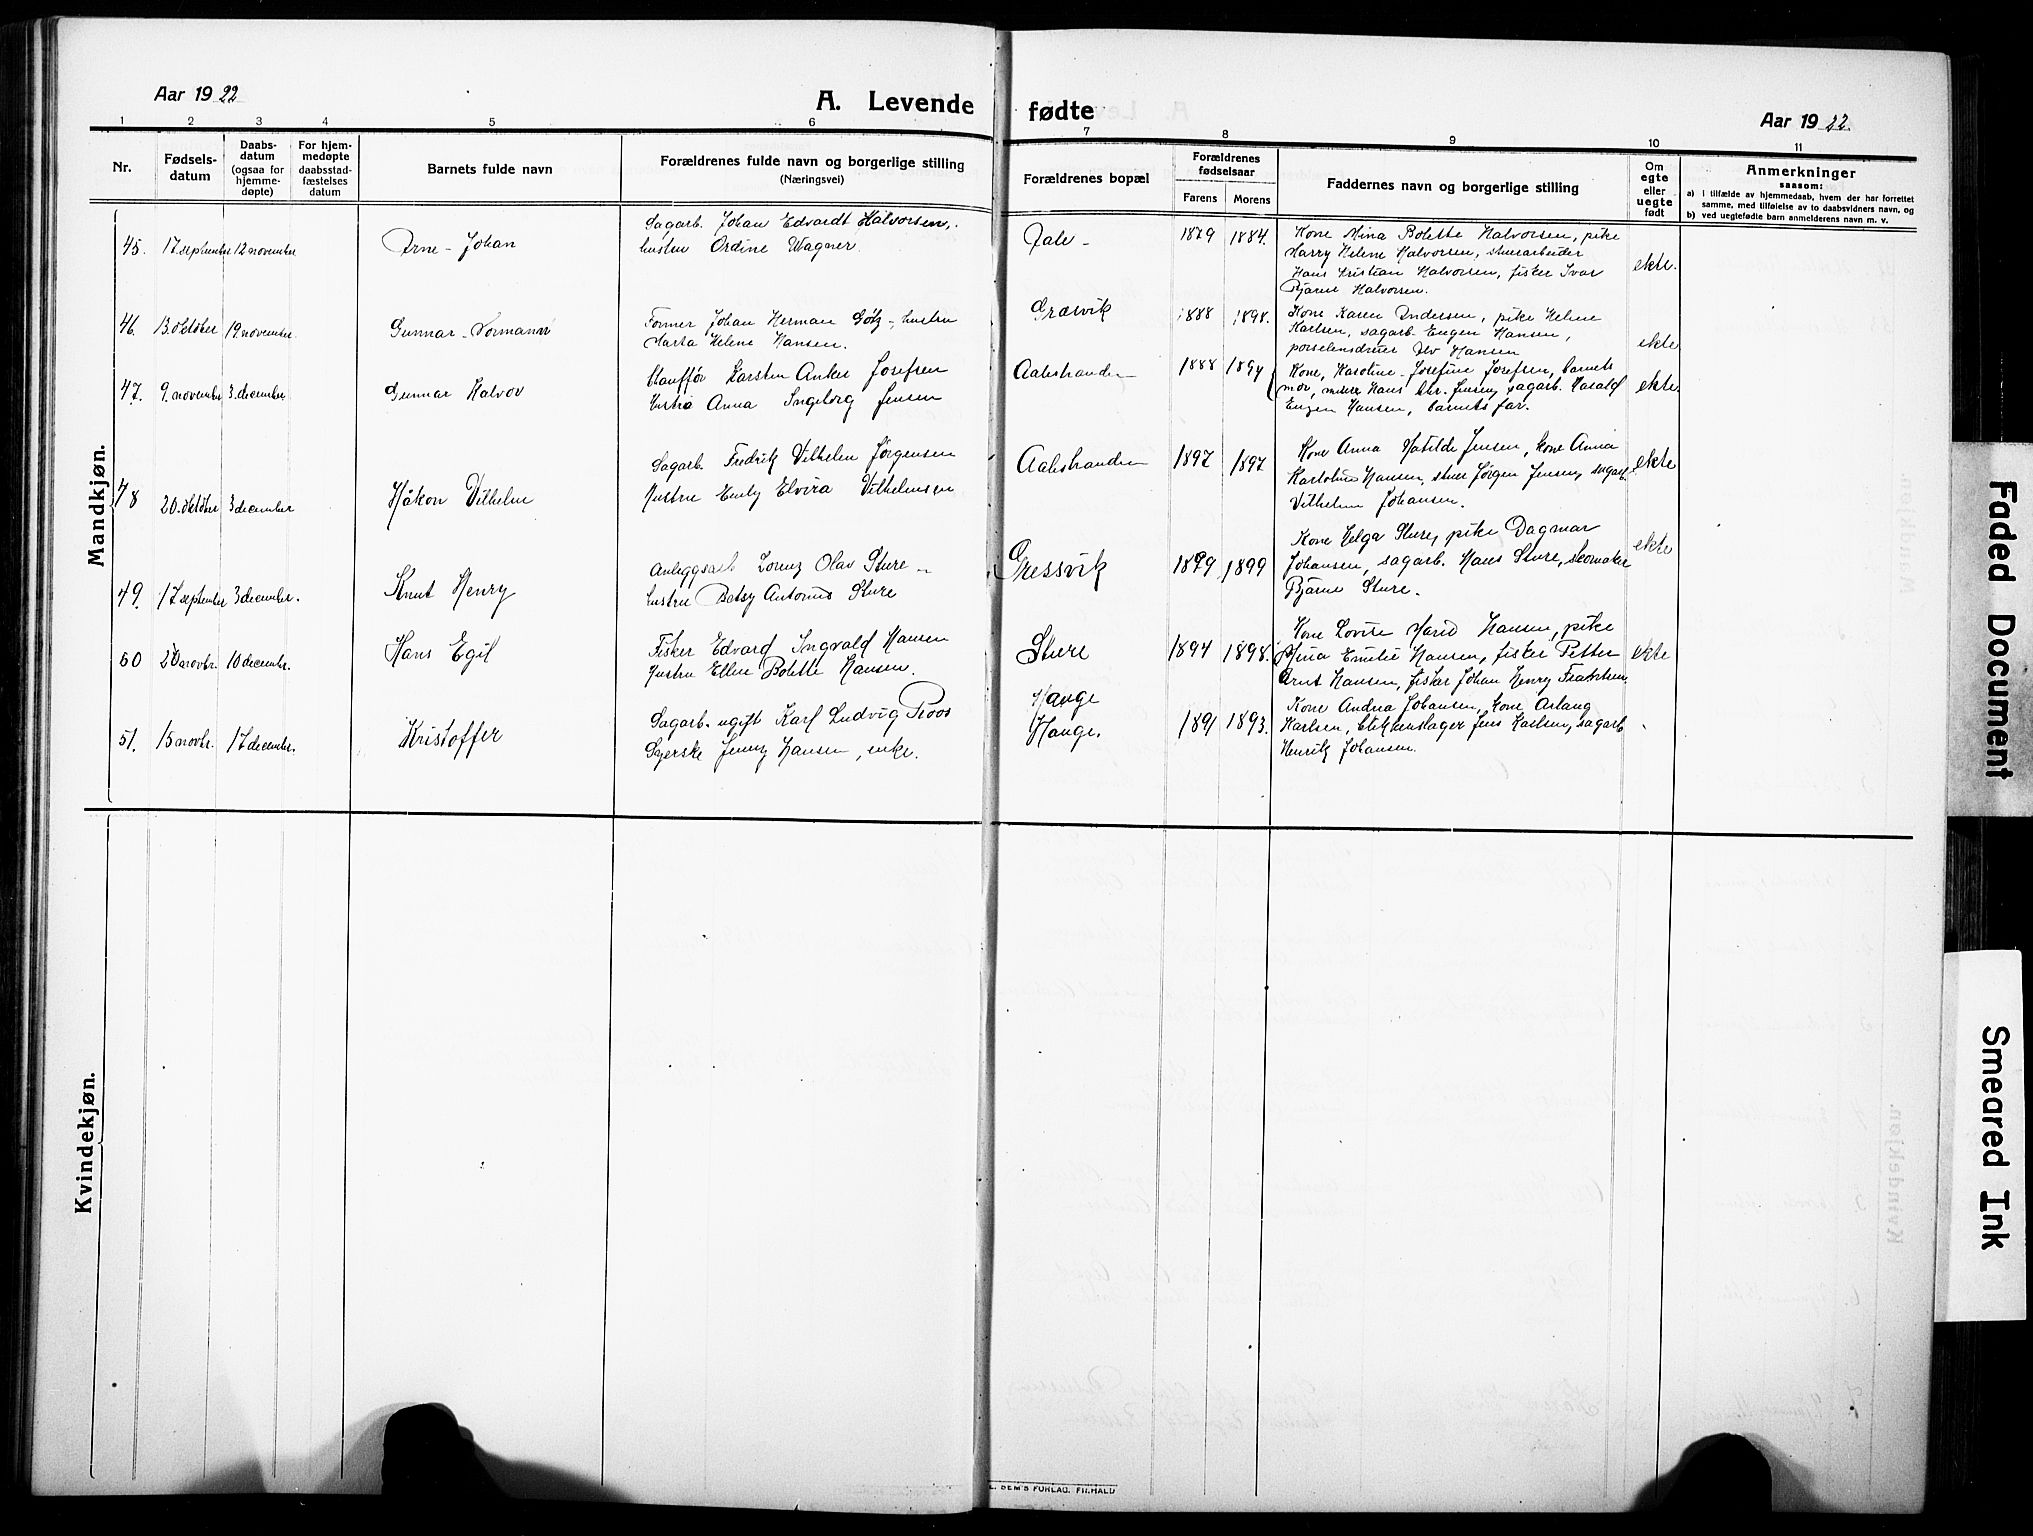 Aar 1922
A. Levende fødte
Aar 1922.
1 2 3 4 5 6 7 8 9 10 11
Nr.
Fødsels-
datum
Daabs-
datum
(ogsaa for
hjemme-
døpte)
For hjem-
medøpte
daabsstad-
fæstelses
datum
Barnets fulde navn
Forældrenes fulde navn og borgerlige stilling
(Næringsvei)
Forældrenes bopæl
Forældrenes
fødselsaar
Farens Morens
Faddernes navn og borgerlige stilling
Om
egte
eller
uegte
født
Anmerkninger
saasom:
a) i tilfælde av hjemmedaab, hvem der har forrettet
samme, med tilføielse av to daabsvidners navn, og
b) ved uegtefødte barn anmelderens navn m. v.
Mandkjøn.
45. 17 september 12 november
Arne - Johan
Sagarb. Johan Edvardt Halvorsen,
hustru Ordine Wagner.
Dale -
1879 1884.
Kone Mina Bolette Halvorsen, pike
Harry Helene Halvorsen, stuerarbeider
Hans Kristian Halvorsen, fisker Ivar
Bjarne Halvorsen.
ekte.
46. 13 oktober 19. november.
Gunnar - Normann
Former Johan Herman Götz -, hustru
Marta Helene Hansen.
Græsvik
1888 1898.
Kone Karen Andersen, pike Helene
Karlsen, sagarb. Eugen Hansen,
porselensdreier Alv Hansen
ekte
47. 9. november 3. december.
Gunnar Halvor
Chauffør Karsten Anker Josefsen
Hustru Anna Ingeborg Jensen
Aalestranden
1888 1894
Kone, Karoline - Josefine Josefsen, barnets
mor, murer Hans Chr. Jensen, sagarb. Harald
Eugen Hansen, barnets far.
ekte
48 20. oktober 3 december
Håkon Vilhelm
Sagarb. Fredrik Vilhelm Jørgensen
Hustru Emly Elvira Vilhelmsen
Aalestranden
1897 1897
Kone Anna Matilde Jensen, kone Anna
Karloline Hansen, stuer Jørgen Jensen, sagarb.
Vilhelm Johansen.
ekte
49. 17 september 3 december.
Knut Henry
Anleggsarb. Lorenz Olav Sture -
hustru Betsy Antonie Sture
Gressvik
1899 1899
Kone Helga Sture, pike Dagmar
Johansen, sagarb. Hans Sture, skomaker
Bjarne Sture.
ekte
50 20 novbr. 10 decembr.
Hans Egil
Fisker Edvard Ingvald Hansen
Hustru Ellen Bolette Hansen.
Sture
1894 1898.
Kone Lovise Marie Hansen, pike
Mina Emilie Hansen, fisker Petter
Arnt Hansen, fisker Johan Henry Frantsen.
ekte
51. 15 novbr. 17 decembr.
Kristoffer
Sagarb. ugift Karl Ludvig Roos
Syerske Jenny Hansen, enke.
Hauge
Hauge.
1891 1893.
Kone Andrea Johansen, kone Aslaug
Karlsen, blikkenslager Jens Karlsen, sagarb.
Henrik Johansen.
Kvindekjøn.
E. SEM'S FORLAG. FR.HALD
Faded Document
Smeared Ink